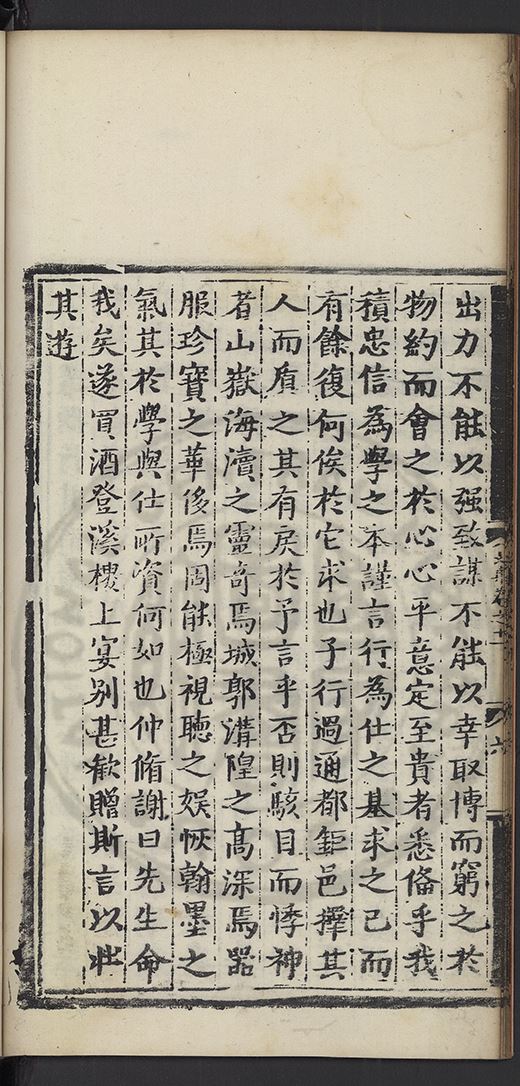 出力不能以强致謀不能以幸取博而窮之於
物約而會之於心心平意定至貴者悉俻乎我
積忠信為學之本謹言行為仕之基求之已而
有餘復何俟於它求也子行過通都鉅邑擇其
人而質之其有戾於予言乎否則駭目而悸神
者山嶽海瀆之靈奇焉城郭溝隍之高深焉器
服珍寶之華侈焉固能極視聽之娱恢翰墨之
氣其於學與仕所資何如也仲脩謝曰先生命
我矣遂買酒登溪樓上宴别甚歡贈斯言以壯
其遊
六